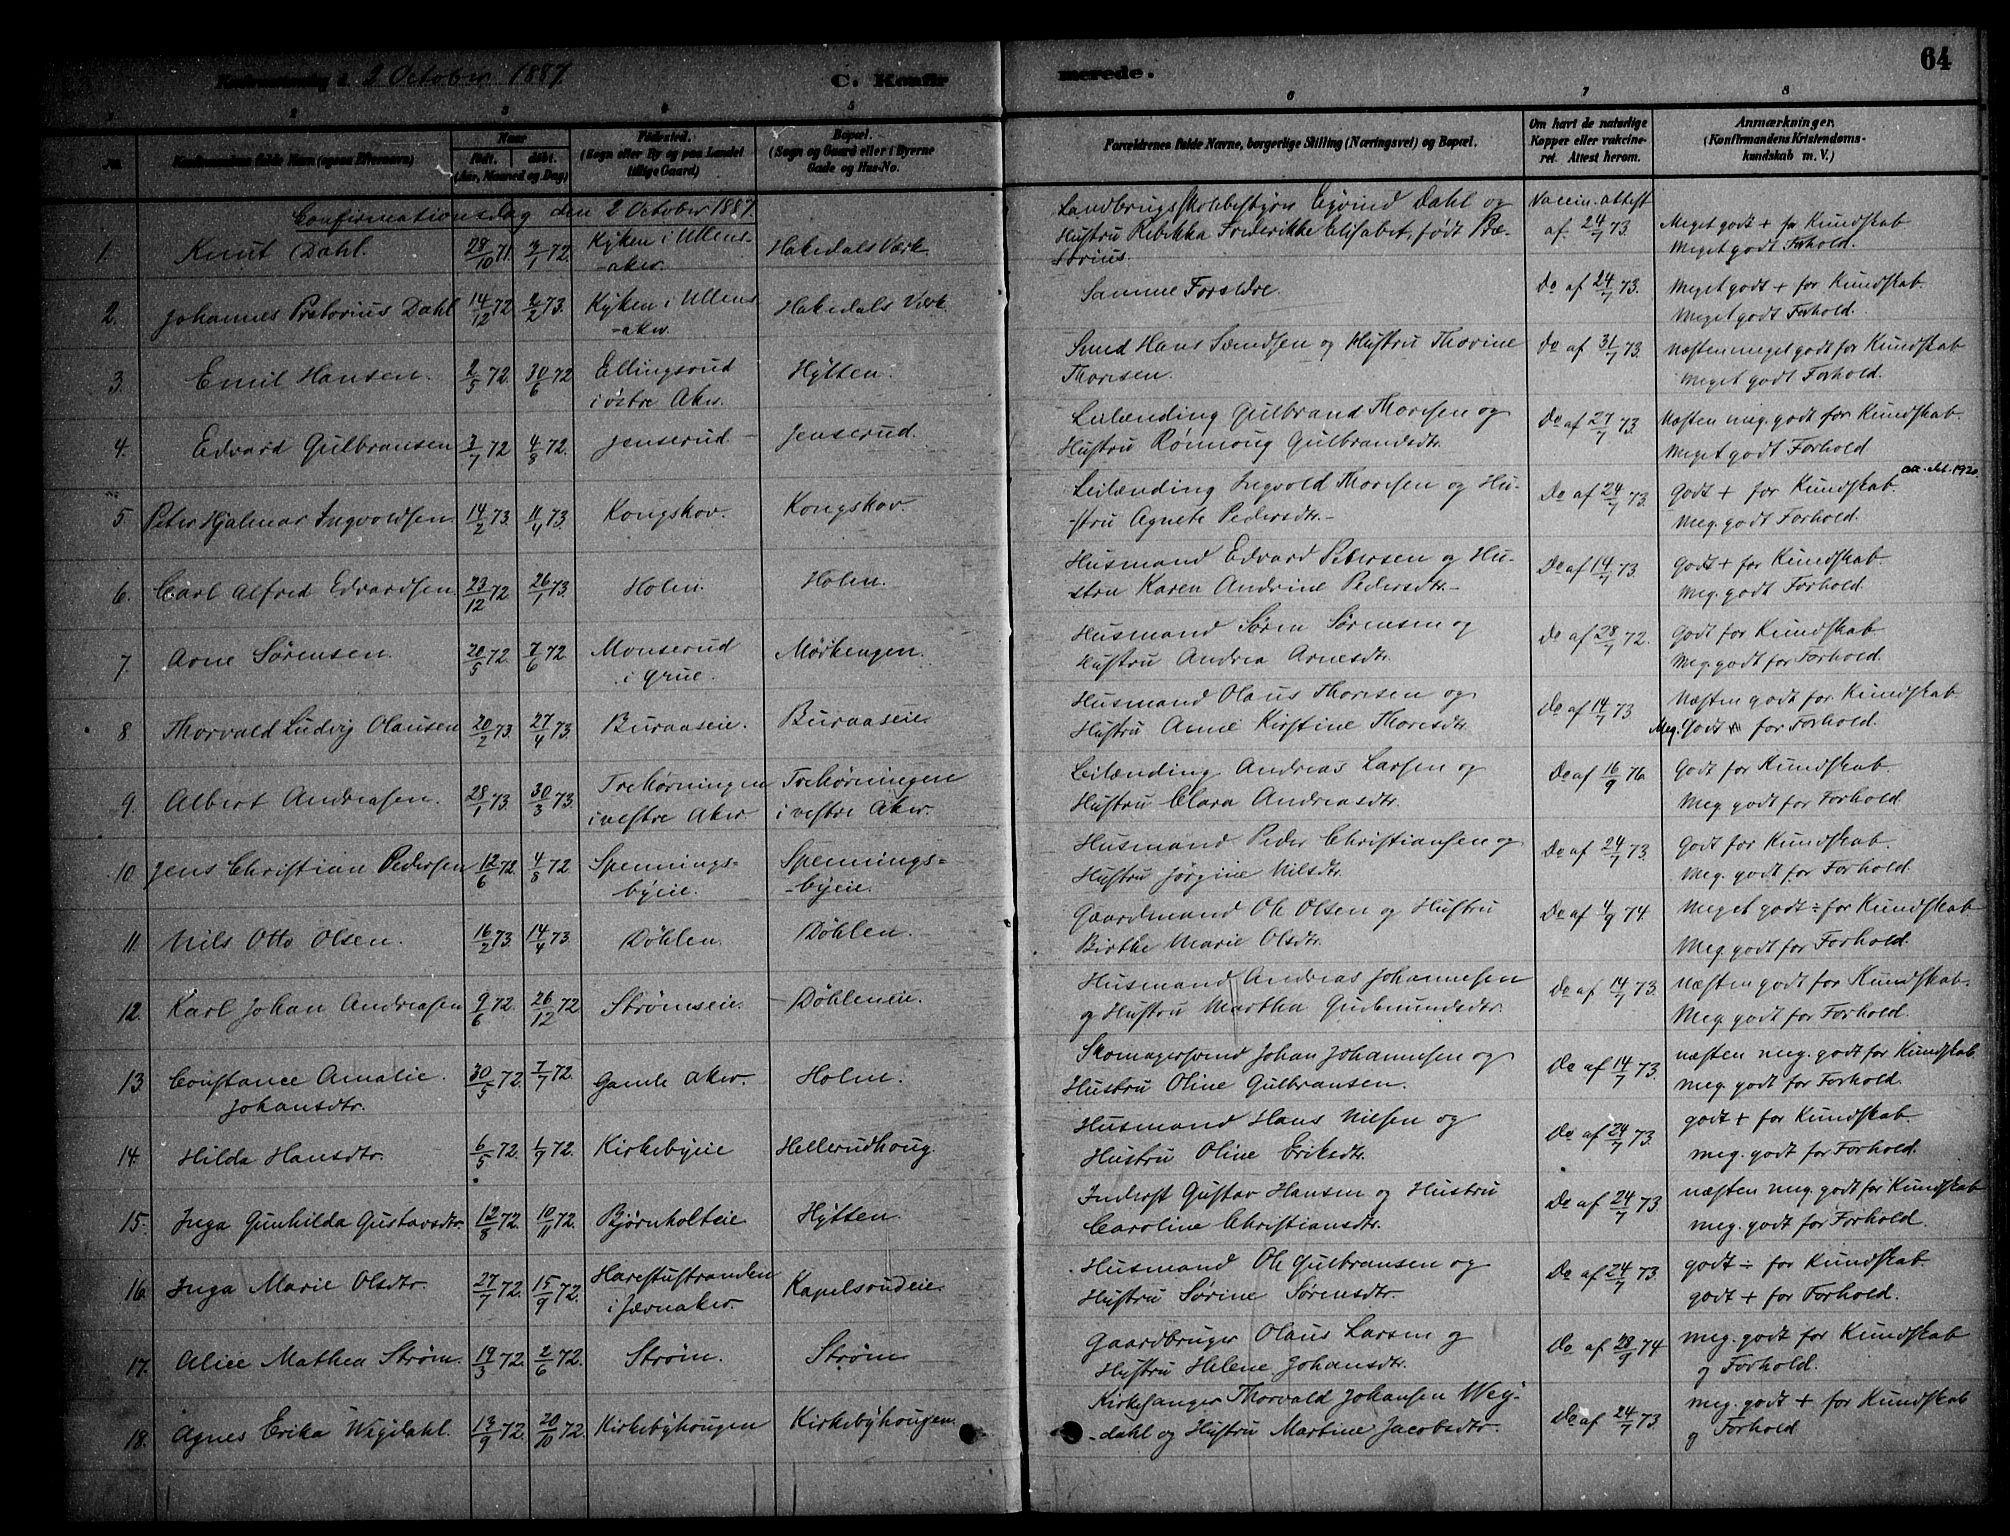 64
2 October 1887.
C. Konfir
merede.
1 2 3 4 5 6 7 8
No. Konfirmandens fulde Navn (ogsaa Efternavn)
Naar
født. døbt.
(Aar, Maaned og Dag)
Fødested.
(Sogn eller By og paa Landet
tillige Gaard)
Bopæl.
(Sogn og Gaard eller i Byerne
Gade og Hus-No.
Forældrenes fulde Navne, borgerlige Stilling (Næringsvei) og Bopæl.
Om havt de naturlige
Kopper eller vakcine-
ret. Attest herom.
Anmærkninger.
(Konfirmandens Kristendoms-
kundskab m. V.)
Confirmationsdag den 2 October 1887.
1. Knut Dahl. 28/10 71 3/1 72. Kyken i Ullens-
-aker. Hakedals Værk
Landbrugsskolebestyrer Ejvind Dahl og
Hustru Rebekka Frederikke Elisabet, født Præ-
torius.
Vaccin. attest
af 24/7 73.
Meget godt + for Kundskab
Meget godt Forhold.
2. Johannes Pretorius Dahl 14/12 72 2/2 73. Kyken i Ullens
-aker. Hakedals Værk
Samme Forældre.
Do af 24/7 73.
Meget godt + for Kundskab.
Meget godt Forhold.
3. Emil Hansen. 2/5 72. 30/6 72 Ellingsrud
i østre Aker. Hytten.
Smed Hans Svendsen og Hustru Thorine
Thoresen.
Do af 31/7 73.
Næsten meget godt for Kundskab
Meget godt Forhold.
4. Edvard Gulbransen 3/7 72 4/8 72. Jenserud - Jenserud.
Leilænding Gulbrand Thoresen og
Hustru Rønnoug Gulbrandsdtr.
Do af 27/7 73.
Næsten meg. godt for Kundskab
Meget godt Forhold
5. Peter Hjalmar Ingvoldsen. 14/2 73. 11/4 73. Kongskov. Kongskov.
Leilænding Ingvold Thoresen og Hu-
-stru Agnete Pedersdtr. -
Do af 24/7 73.
att. ds. 1920
Godt + for Kundskab.
Meg. godt Forhold.
6. Carl Alfred Edvardsen 23/12 72. 26/1 73. Holm. Holm.
Husmand Edvard Petersen og Hu-
stru Karen Andrine Pedersdtr. -
Do af 14/7 73.
Godt + for Kundskab
Meg. godt Forhold.
7. Arne Sørensen. 20/5 72. 7/6 72. Monserud
i Grue. Mørkengen.
Husmand Søren Sørensen og
Hustru Andrea Arnesdtr.
Do af 28/7 72.
Godt for Kundskab
Meg. godt for Forhold.
8 Thorvald Ludvig Olausen 20/2 73. 27/4 73. Buraaseie. Buraaseie.
Husmand Olaus Thoresen og
Hustru Anne Kirstine Thoresdtr.
Do af 14/7 73
Næsten godt for Kundskab
Meg. Godt for Forhold.
9. Albert Andreasen. 28/1 73. 30/3 73. Trehørningen
i vestre Aker Trehørningen
i vestre Aker.
Leilænding Andreas Larsen og
Hustru Clara Andreasdtr.
Do af 16/9 76
Godt for Kundskab.
Meg. godt for Forhold.
10. Jens Christian Pedersen 12/6 72. 4/8 72. Spennings-
byeie. Spennings-
-byeie.
Husmand Peder Christiansen og
Hustru Jørgine Nilsdtr.
Do af 24/7 73.
Godt for Kundskab.
Meg. godt for Forhold.
11. Nils Otto Olsen. 16/2 73. 14/4 73. Døhlen. Døhlen.
Gaardmand Ole Olsen og Hustru
Birthe Marie Olsdtr.
Do af 4/9 74.
Meget godt ÷ for Kundskab
Meg. godt for Forhold.
12. Karl Johan Andreasen 9/6 72. 26/12 72 Strømseie. Døhleneie.
Husmand Andreas Johannesen
og Hustru Martha Gudmundsdtr.
Do af 14/7 73.
Næsten godt for Kundskab.
Meg. godt for Forhold.
13 Constance Amalie.
Johansdtr. 30/5 72. 7/7 72. Gamle Aker. Holm.
Skomagersvend Johan Johannesen og
Hustru Oline Gulbransen.
Do af 14/7 73.
næsten meg. godt for Kundskab
meg. godt for Forhold.
14. Hilda Hansdtr. 6/5 72. 1/9 72. Kirkebyeie Hellerudhoug.
Husmand Hans Nilsen og
Hustru Oline Eriksdtr.
Do af 24/7 73.
godt + for Kundskab
meg. godt for Forhold.
15. Inga Gunhilda Gustavsdtr. 12/8 72. 10/11 72. Bjørnholteie Hytten.
Inderst Gustav Hansen og Hustru
Caroline Christiansdtr.
Do af 24/7 73
næsten meg. godt for Kundskab
meg. godt for Forhold.
16. Inga Marie Olsdtr. 27/7 72. 15/9 72. Harestustranden
i Jævnaker. Kapelsrudeie.
Husmand Ole Gulbransen og
Hustru Sørine Sørensdtr.
Do af 24/7 73.
godt ÷ for Kundskab
godt + for Forhold.
17. Alice Mathea Strøm. 19/3 72. 2/6 72. Strøm. Strøm
Gaardbruger Olaus Larsen og
Hustru Helene Johansdtr.
Do af 28/9 74
meg. godt for Kundskab
og Forhold.
18. Agnes Erika Wejdahl. 13/9 72. 20/10 72. Kirkebyhougen Kirkebyhougen.
Kirkesanger Thorvald Johansen Wej-
-dahl og Hustru Martine Jacobsdtr.
Do af 24/7 73
meg. godt + for Kundskab
og Forhold